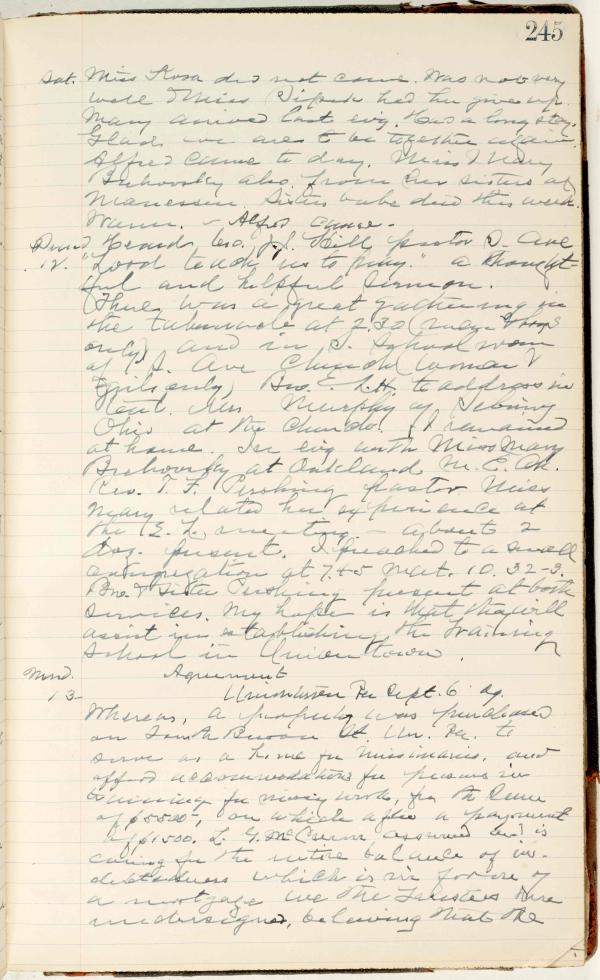 245
Sat. Miss Rosa did not come. Was not very
well & Miss had her give up.
Many arrived last evg. Has a long stay.
Glad we are to be together again.
Alfred came to day. Miss Mary
also from her sisters at
Manessen. Sisters babe died this week.
Warm. – Alfred came.
Heard, Geo. J. Hill, pastor D. Ave
12. "Lord teach us to pray." a thought-
ful and helpful sermon.
(There was a great gathering in
the tabernacle at 2.30 (men & boys
only) and in S. School room
of J. Ave Church (woman &
girls only) Bro. E. L. H. to address in
Tent. Mrs Murphy of Sebring
Ohio at the Church. I remained
at home. In evg with Miss Mary
at Oakland M. E. Ch.
Rev. T. F. Pershing pastor Miss
Mary related her experience at
the E. L. meeting – about 2
doz. present. I preached to a small
congregation at 7.45 Mat. 10. 32-3.
Bro & Sister Pershing present at both
services. My hope is that they will
assist in establishing the Training
School in Uniontown.
Mond. Agreement
13 Uniontown Pa Sept. 6
Whereas, a property was purchased
on South St. Un. Pa. to
serve as a home for missionaries, and
afford accommodations for persons in
training for missy work, for the sum
of $5500, on which after a payment
of $1500. L. G. McCrum assumed and is
caring for the entire balance of in-
debtedness which is in form of
a mortgage we the Trustees here
undersigned, believing that the